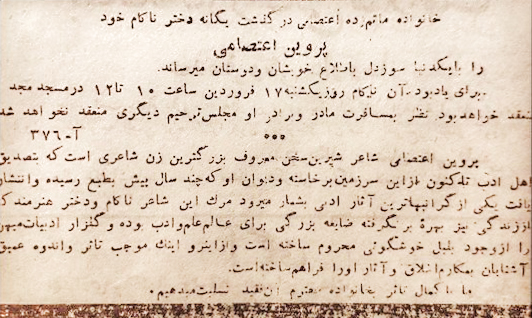 خانواده ماتم زده اعتصامی درگذشت یگانه دختر ناکام خود
پروین اعتصامی
را بایکدنیا سوزدل باطلاع خویشان ودوستان میرساند.
برای یادبود آن ناکام روزیکشنبه ۱۷ فروردین ساعت ۱۰ تا ۱۲ درمسجد مجد
منعقد خواهدبود نظر بمسافرت مادر وبرادر او مجلس ترحیم دیگری منعقد نخواهد شد
آ-۳۷۶
پروین اعتصامی شاعر شیرین سخن معروف بزرگترین زن شاعری است که بتصدیق
اهل ادب تاکنون ازاین سرزمین برخاسته ودیوان او که چند سال پیش بطبع رسیده وانتشار
یافت یکی ازگرانبهاترین آثار ادبی بشمار میرود مرك این شاعر ناکام ودختر هنرمند که
اززندگی نیز بهرۀ برنگرفته ضایعه بزرگی برای عالم علم وادب بوده وگلزار ادبیات میهن
را ازوجود بلبل خوشگوئی محروم ساخته است وازاینرو اینك موجب تاثر واندوه عمیق
آشنایان بمکارم اخلاق وآثار اورا فراهم ساخته است.
ما با کمال تاثر بخانواده محترم آن فقید تسلیت میدهیم.